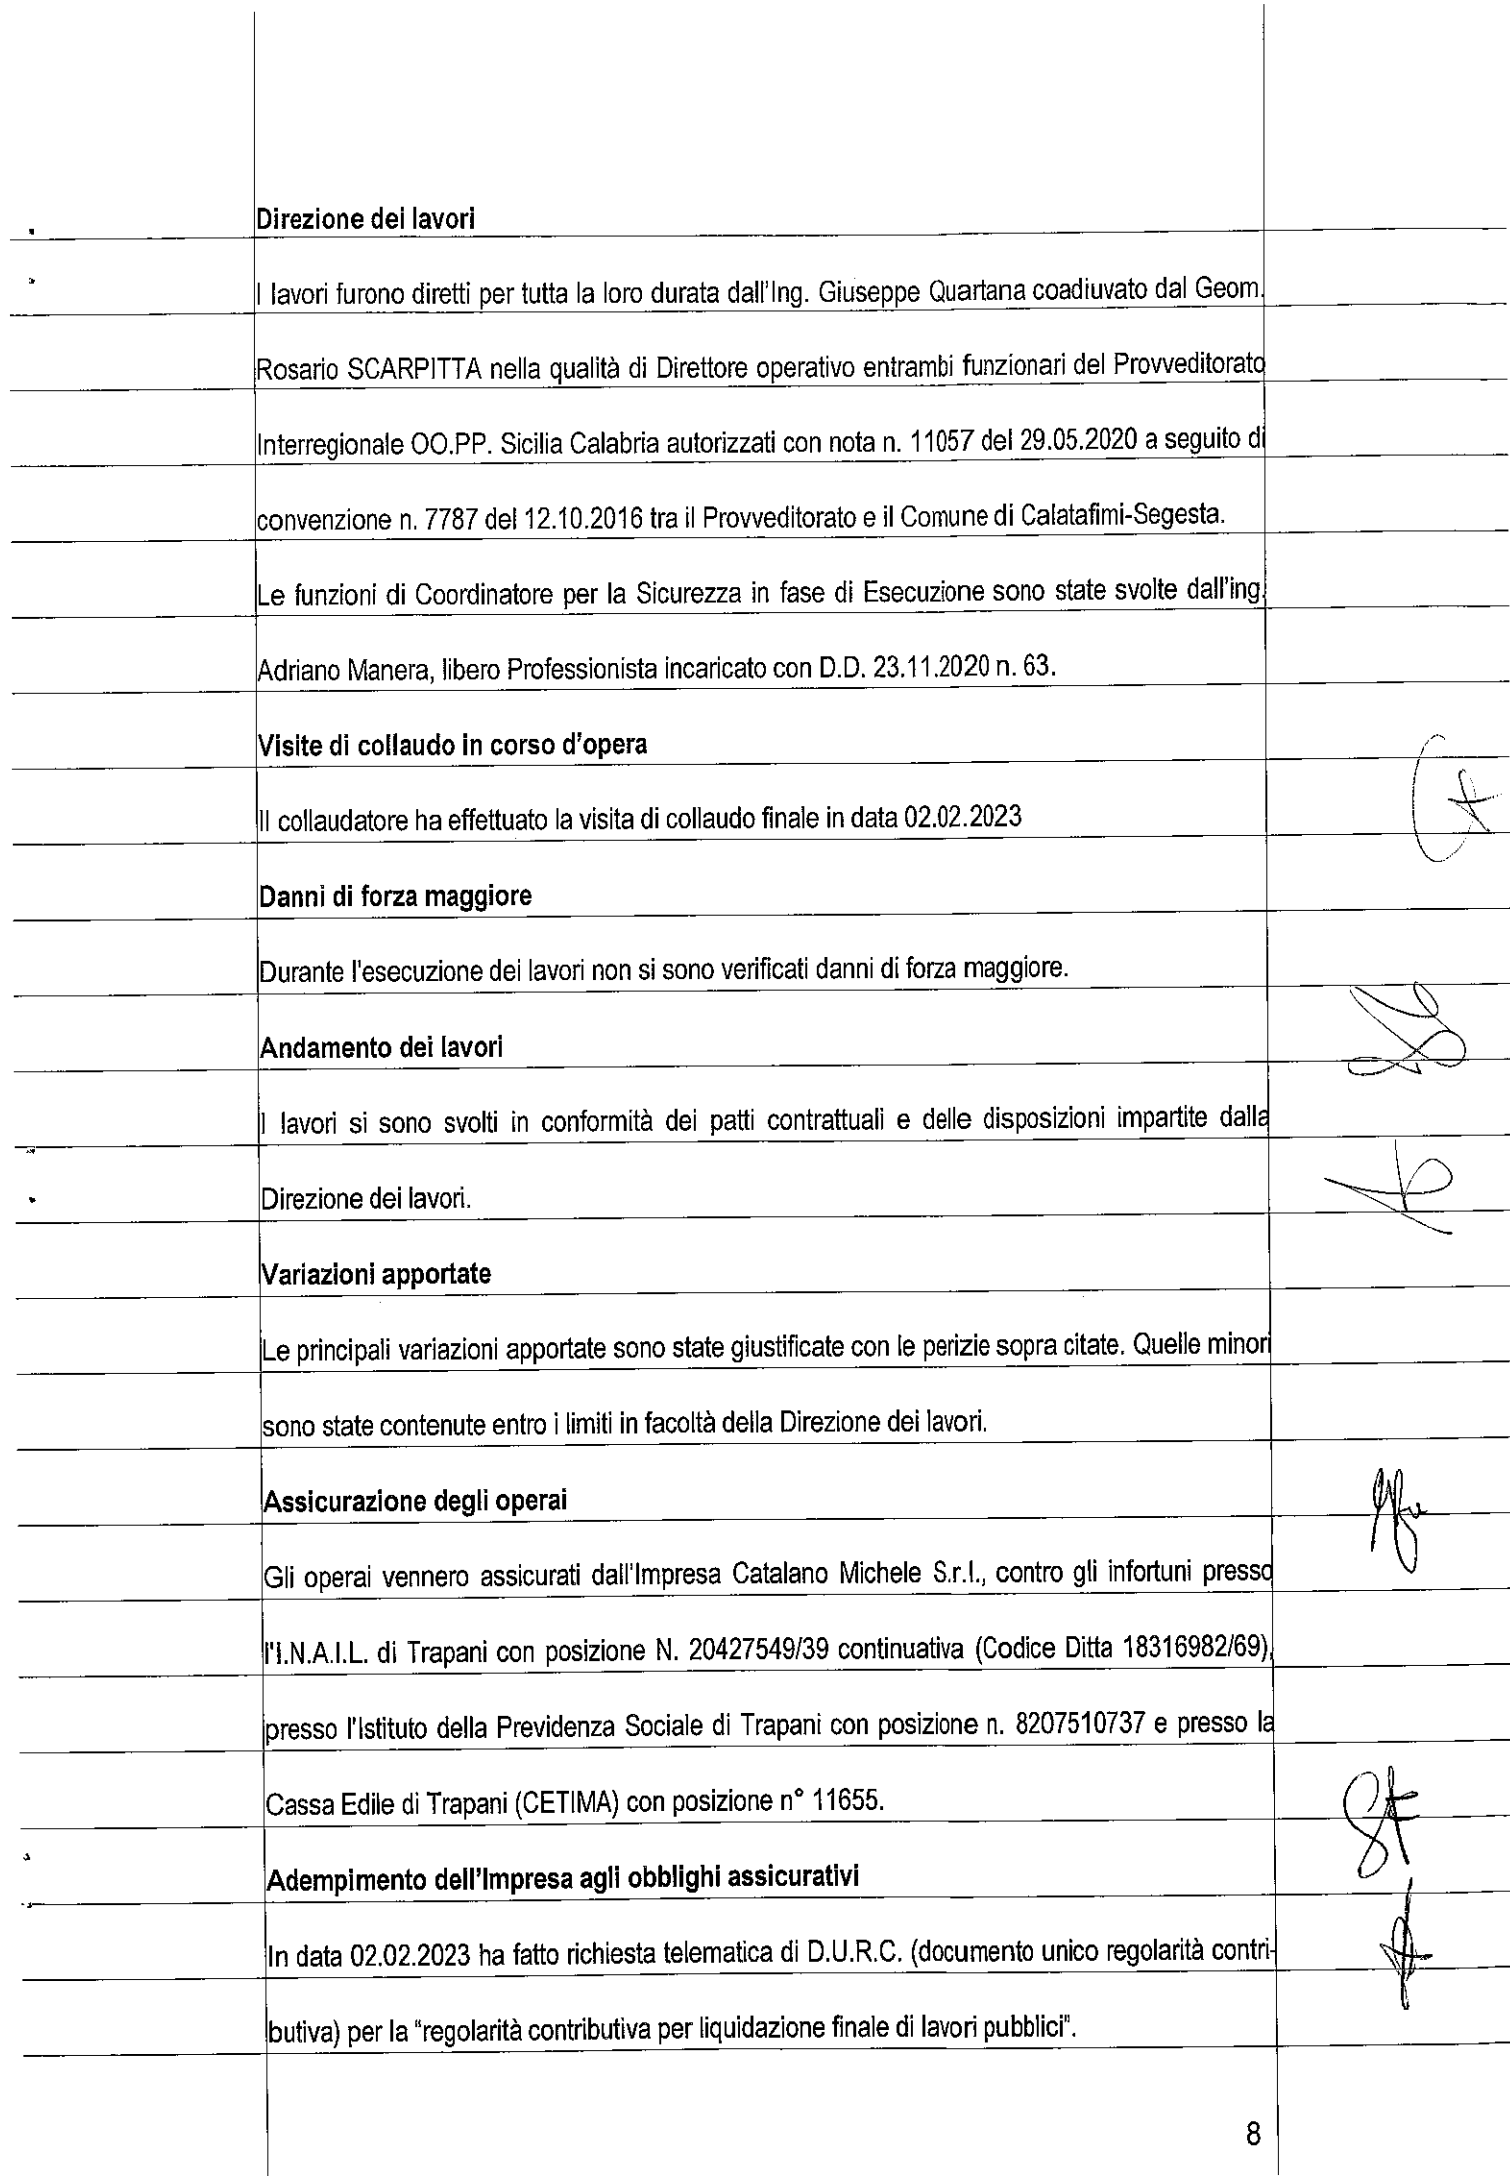 Direzione dei lavori
I lavori furono diretti per tutta la loro durata dall'Ing. Giuseppe Quartana coadiuvato dal Geom.
Rosario SCARPITTA nella qualità di Direttore operativo entrambi funzionari del Provveditorato
Interregionale OO.PP. Sicilia Calabria autorizzati con nota n. 11057 del 29.05.2020 a seguito di
convenzione n. 7787 del 12.10.2016 tra il Provveditorato e il Comune di Calatafimi-Segesta.
Le funzioni di Coordinatore per la Sicurezza in fase di Esecuzione sono state svolte dall'ing.
Adriano Manera, libero Professionista incaricato con D.D. 23.11.2020 n. 63.
Visite di collaudo in corso d'opera
Il collaudatore ha effettuato la visita di collaudo finale in data 02.02.2023
Danni di forza maggiore
Durante l'esecuzione dei lavori non si sono verificati danni di forza maggiore.
Andamento dei lavori
I lavori si sono svolti in conformità dei patti contrattuali e delle disposizioni impartite dalla
Direzione dei lavori.
Variazioni apportate
Le principali variazioni apportate sono state giustificate con le perizie sopra citate. Quelle minori
sono state contenute entro i limiti in facoltà della Direzione dei lavori.
Assicurazione degli operai
Gli operai vennero assicurati dall'Impresa Catalano Michele S.r.l., contro gli infortuni presso
l'I.N.A.I.L. di Trapani con posizione N. 20427549/39 continuativa (Codice Ditta 18316982/69),
presso l'Istituto della Previdenza Sociale di Trapani con posizione n. 8207510737 e presso la
Cassa Edile di Trapani (CETIMA) con posizione n° 11655.
Adempimento dell'Impresa agli obblighi assicurativi
In data 02.02.2023 ha fatto richiesta telematica di D.U.R.C. (documento unico regolarità contri-
butiva) per la "regolarità contributiva per liquidazione finale di lavori pubblici".
8